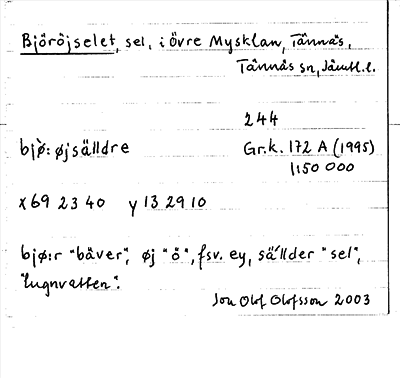 Björöjselet, sel, i övre Mysklan, Tännäs,
Tännäs sn, Jämtl. l.
244
bjø̀:øjsälldre Gr.k. 172 A (1995)
1:50 000
x 69 23 40 y 13 29 10
bjø:r "bäver", øj "ö", fsv. ey, sä´llder "sel",
"lugnvatten".
Jon Olof Olofsson 2003